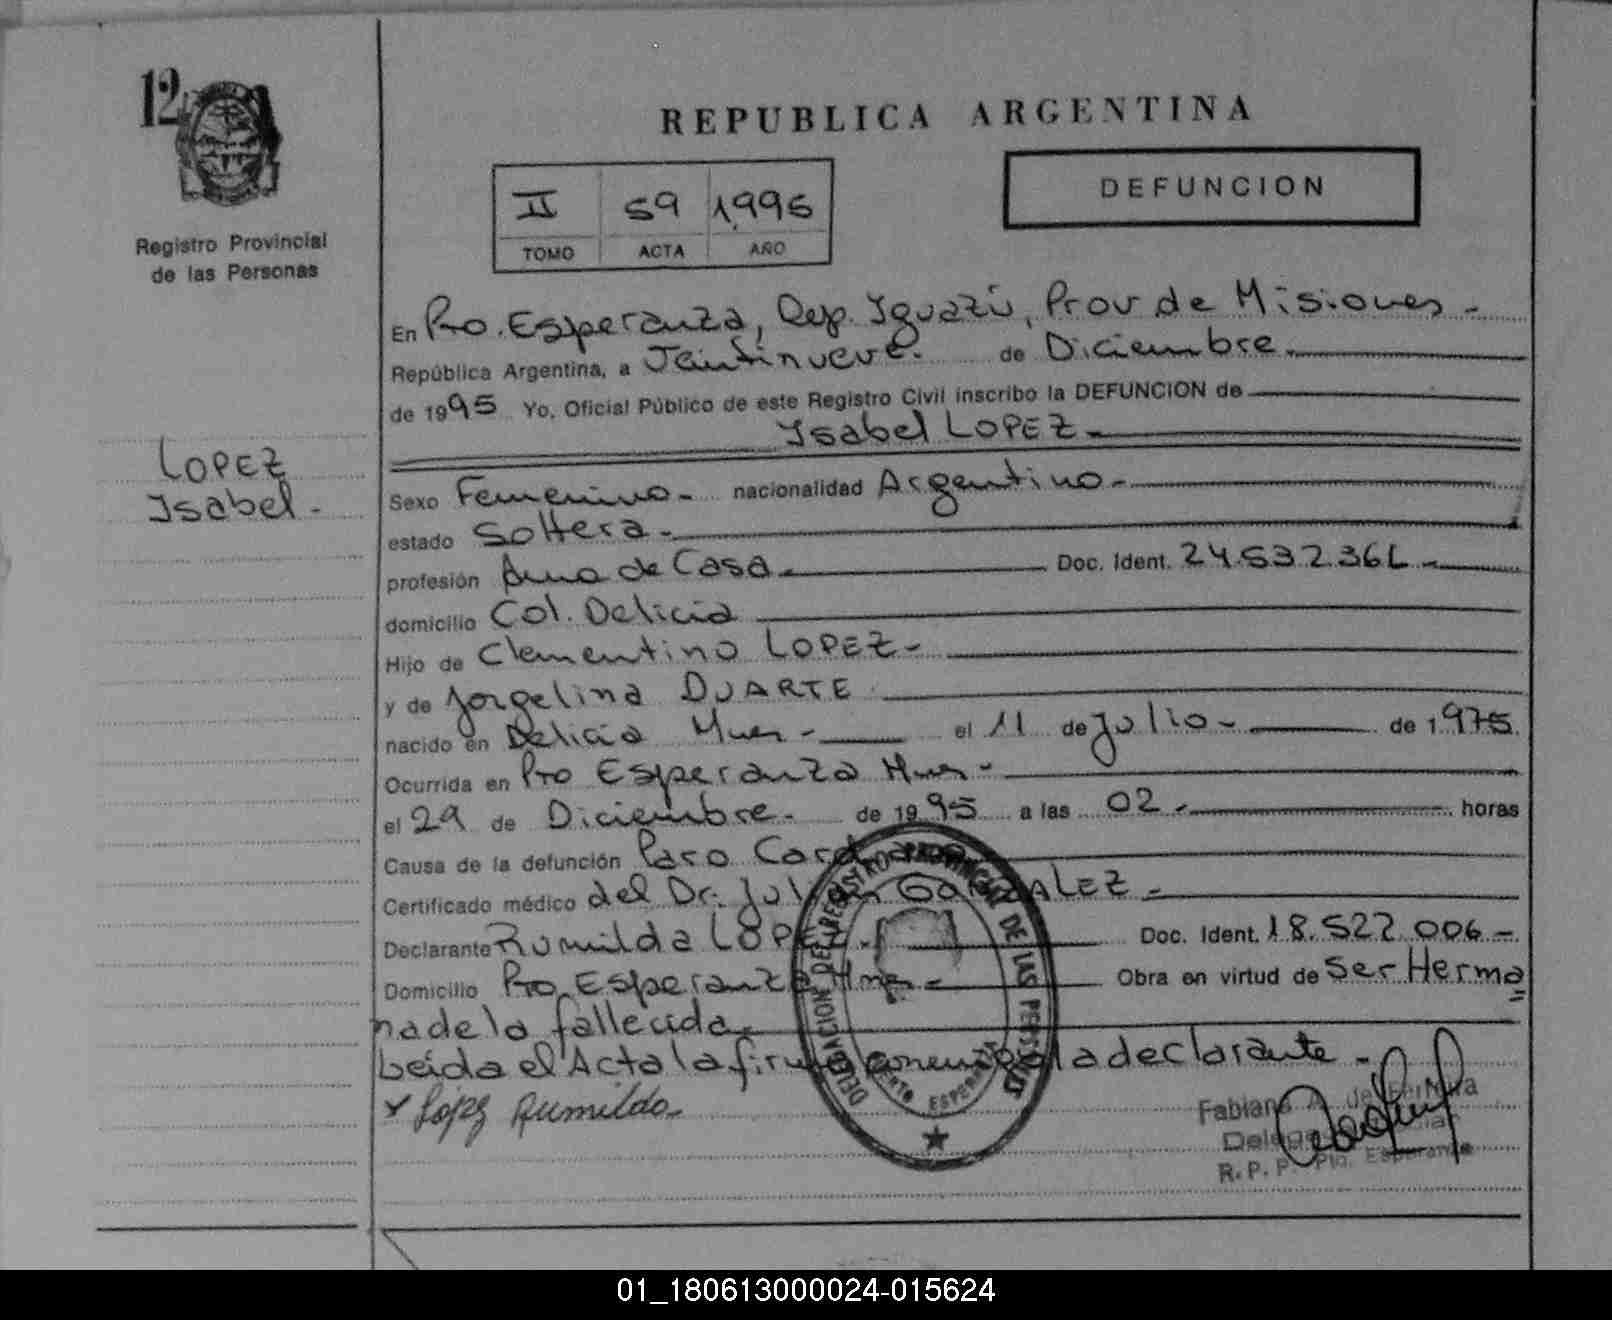 12
REPUBLICA ARGENTINA
II 59 1,995
TOMO ACTA AÑO
DEFUNCION
Registro Provincial
de las Personas
En Pto. Esperanza, Dep. Iguazú, Prov de Misiones -
República Argentina, a Veintinueve. de Diciembre.
de 1995 Yo, Oficial Público de este Registro Civil inscribo la DEFUNCION de
Isabel LOPEZ -
LOPEZ
Isabel -
Sexo Femenino - nacionalidad Argentino -
estado Soltera -
profesión Ama de Casa - Doc. Ident. 24.532.36
domicilio Col. Delicia
Hijo de Clementino LOPEZ -
y de Jorgelina DUARTE
nacido en Delicia Mnes - el 11 de Julio - de 1975
Ocurrida en Pto Esperanza Mnes -
el 29 de Diciembre - de 1995 a las 02 - horas
Causa de la defunción Paro Cardiaco
Certificado médico del Dr. Julian GONZALEZ -
Declarante Rumilda LOPEZ - Doc. Ident. 18.522.006 -
Domicilio Pto Esperanza Mnes - Obra en virtud de Ser Herma
na de la fallecida -
Leída el Acta la firma conmigo la declarante -
López Rumilda -
DELEGACION DEL REGISTRO PROVINCIAL DE LAS PERSONAS
PUERTO ESPERANZA
Fabiana A. de Ferreira
Delega
R. P. P. Pto. Esperanza
01_180613000024-015624